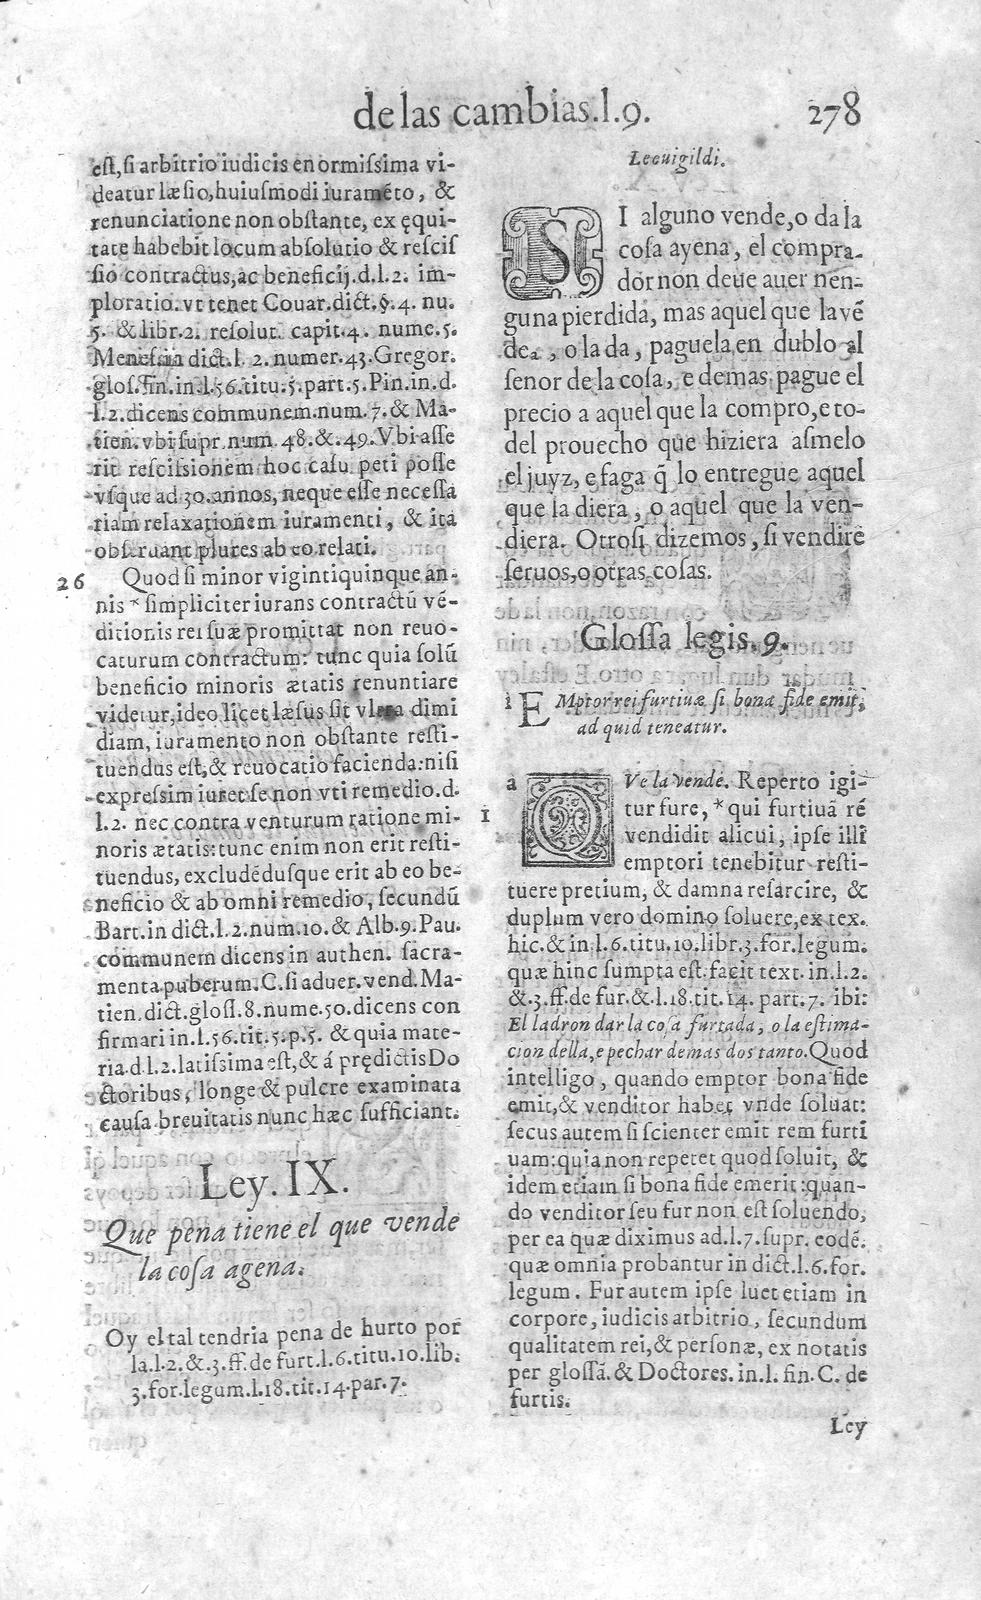 de las cambias.l.9. 278
est, si arbitrio iudicis enormissima vi-
deatur læsio, huiusmodi iuramẽto, &
renunciatione non obstante, ex ęqui-
tate habebit locum absolutio & rescis
sio contractus, ac beneficij.d.l.2. im-
ploratio. vt tenet Couar.dict.§.4. nu.
5. & libr.2. resolut. capit.4. nume.5.
Menesia dict.l.2.numer.43.Gregor.
glos.fin.in.l.56.titu.5.part.5.Pin.in.d.
l.2.dicens communem.num.7.& Ma-
tien.vbi supr.num.48.&.49.Vbi asse
rit rescissionem hoc casu peti posse
vsque ad 30.annos, neque esse necessa
riam relaxationem iuramenti, & ita
obseruant plures ab eo relati.
26 Quod si minor vigintiquinque an-
nis * simpliciter iurans contractũ vẽ-
ditionis rei suæ promittat non reuo-
caturum contractum: tunc quia solũ
beneficio minoris ætatis renuntiare
videtur, ideo licet læsus sit vltra dimi
diam, iuramento non obstante resti-
tuendus est, & reuocatio facienda: nisi
expressim iuret se non vti remedio.d.
l.2. nec contra venturum ratione mi-
noris ætatis: tunc enim non erit resti-
tuendus, excludẽdusque erit ab eo be-
neficio & ab omni remedio, secundũ
Bart.in dict.l.2.num.10.& Alb.9.Pau.
communem dicens in authen. sacra-
menta puberum.C.si aduer.vend.Ma-
tien.dict.gloss.8.nume.50.dicens con
firmari in.l.56.tit.5.p.5. & quia mate-
ria.d.l.2.latissima est, & á prędictis Do
ctoribus, longe & pulcre examinata
causa breuitatis nunc hæc sufficiant.
Ley. IX.
Que pena tiene el que vende
la cosa agena.
Oy el tal tendria pena de hurto por
la.l.2.&.3.ff.de furt.l.6.titu.10.lib.
3.for.legum.l.18.tit.14.par.7.
Leeuigildi.
SI alguno vende, o da la
cosa ayena, el compra-
dor non deue auer nen-
guna pierdida, mas aquel que la vẽ
de a, o la da, paguela en dublo al
senor de la cosa, e demas pague el
precio a aquel que la compro, e to-
do prouecho que hiziera asmelo
el juyz, e faga q̃ lo entregue aquel
que la diera, o aquel que la ven-
diera. Otrosi dizemos, si vendirẽ
seruos, o otras cosas.
Glossa legis.9.
1 EMptor rei furtiuæ si bona fide emit,
ad quid teneatur.
a QVe la vende. Reperto igi-
1 tur fure, * qui furtiuã rẽ
vendidit alicui, ipse illi
emptori tenebitur resti-
tuere pretium, & damna resarcire, &
duplum vero domino soluere, ex tex.
hic.& in.l.6.titu.10.libr.3.for.legum.
quæ hinc sumpta est. facit text.in.l.2.
&.3.ff.de fur.&.l.18.tit.14. part.7. ibi:
El ladron dar la cosa furtada, o la estima-
cion della, e pechar demas dos tanto.Quod
intelligo, quando emptor bona fide
emit, & venditor habet vnde soluat:
secus autem si scienter emit rem furti
uam: quia non repetet quod soluit, &
idem etiam si bona fide emerit: quan-
do venditor seu fur non est soluendo,
per ea quæ diximus ad.l.7.supr. eodẽ.
quæ omnia probantur in dict.l.6.for.
legum. Fur autem ipse luet etiam in
corpore, iudicis arbitrio, secundum
qualitatem rei, & personæ, ex notatis
per glossã.& Doctores.in.l. fin.C. de
furtis.
Ley